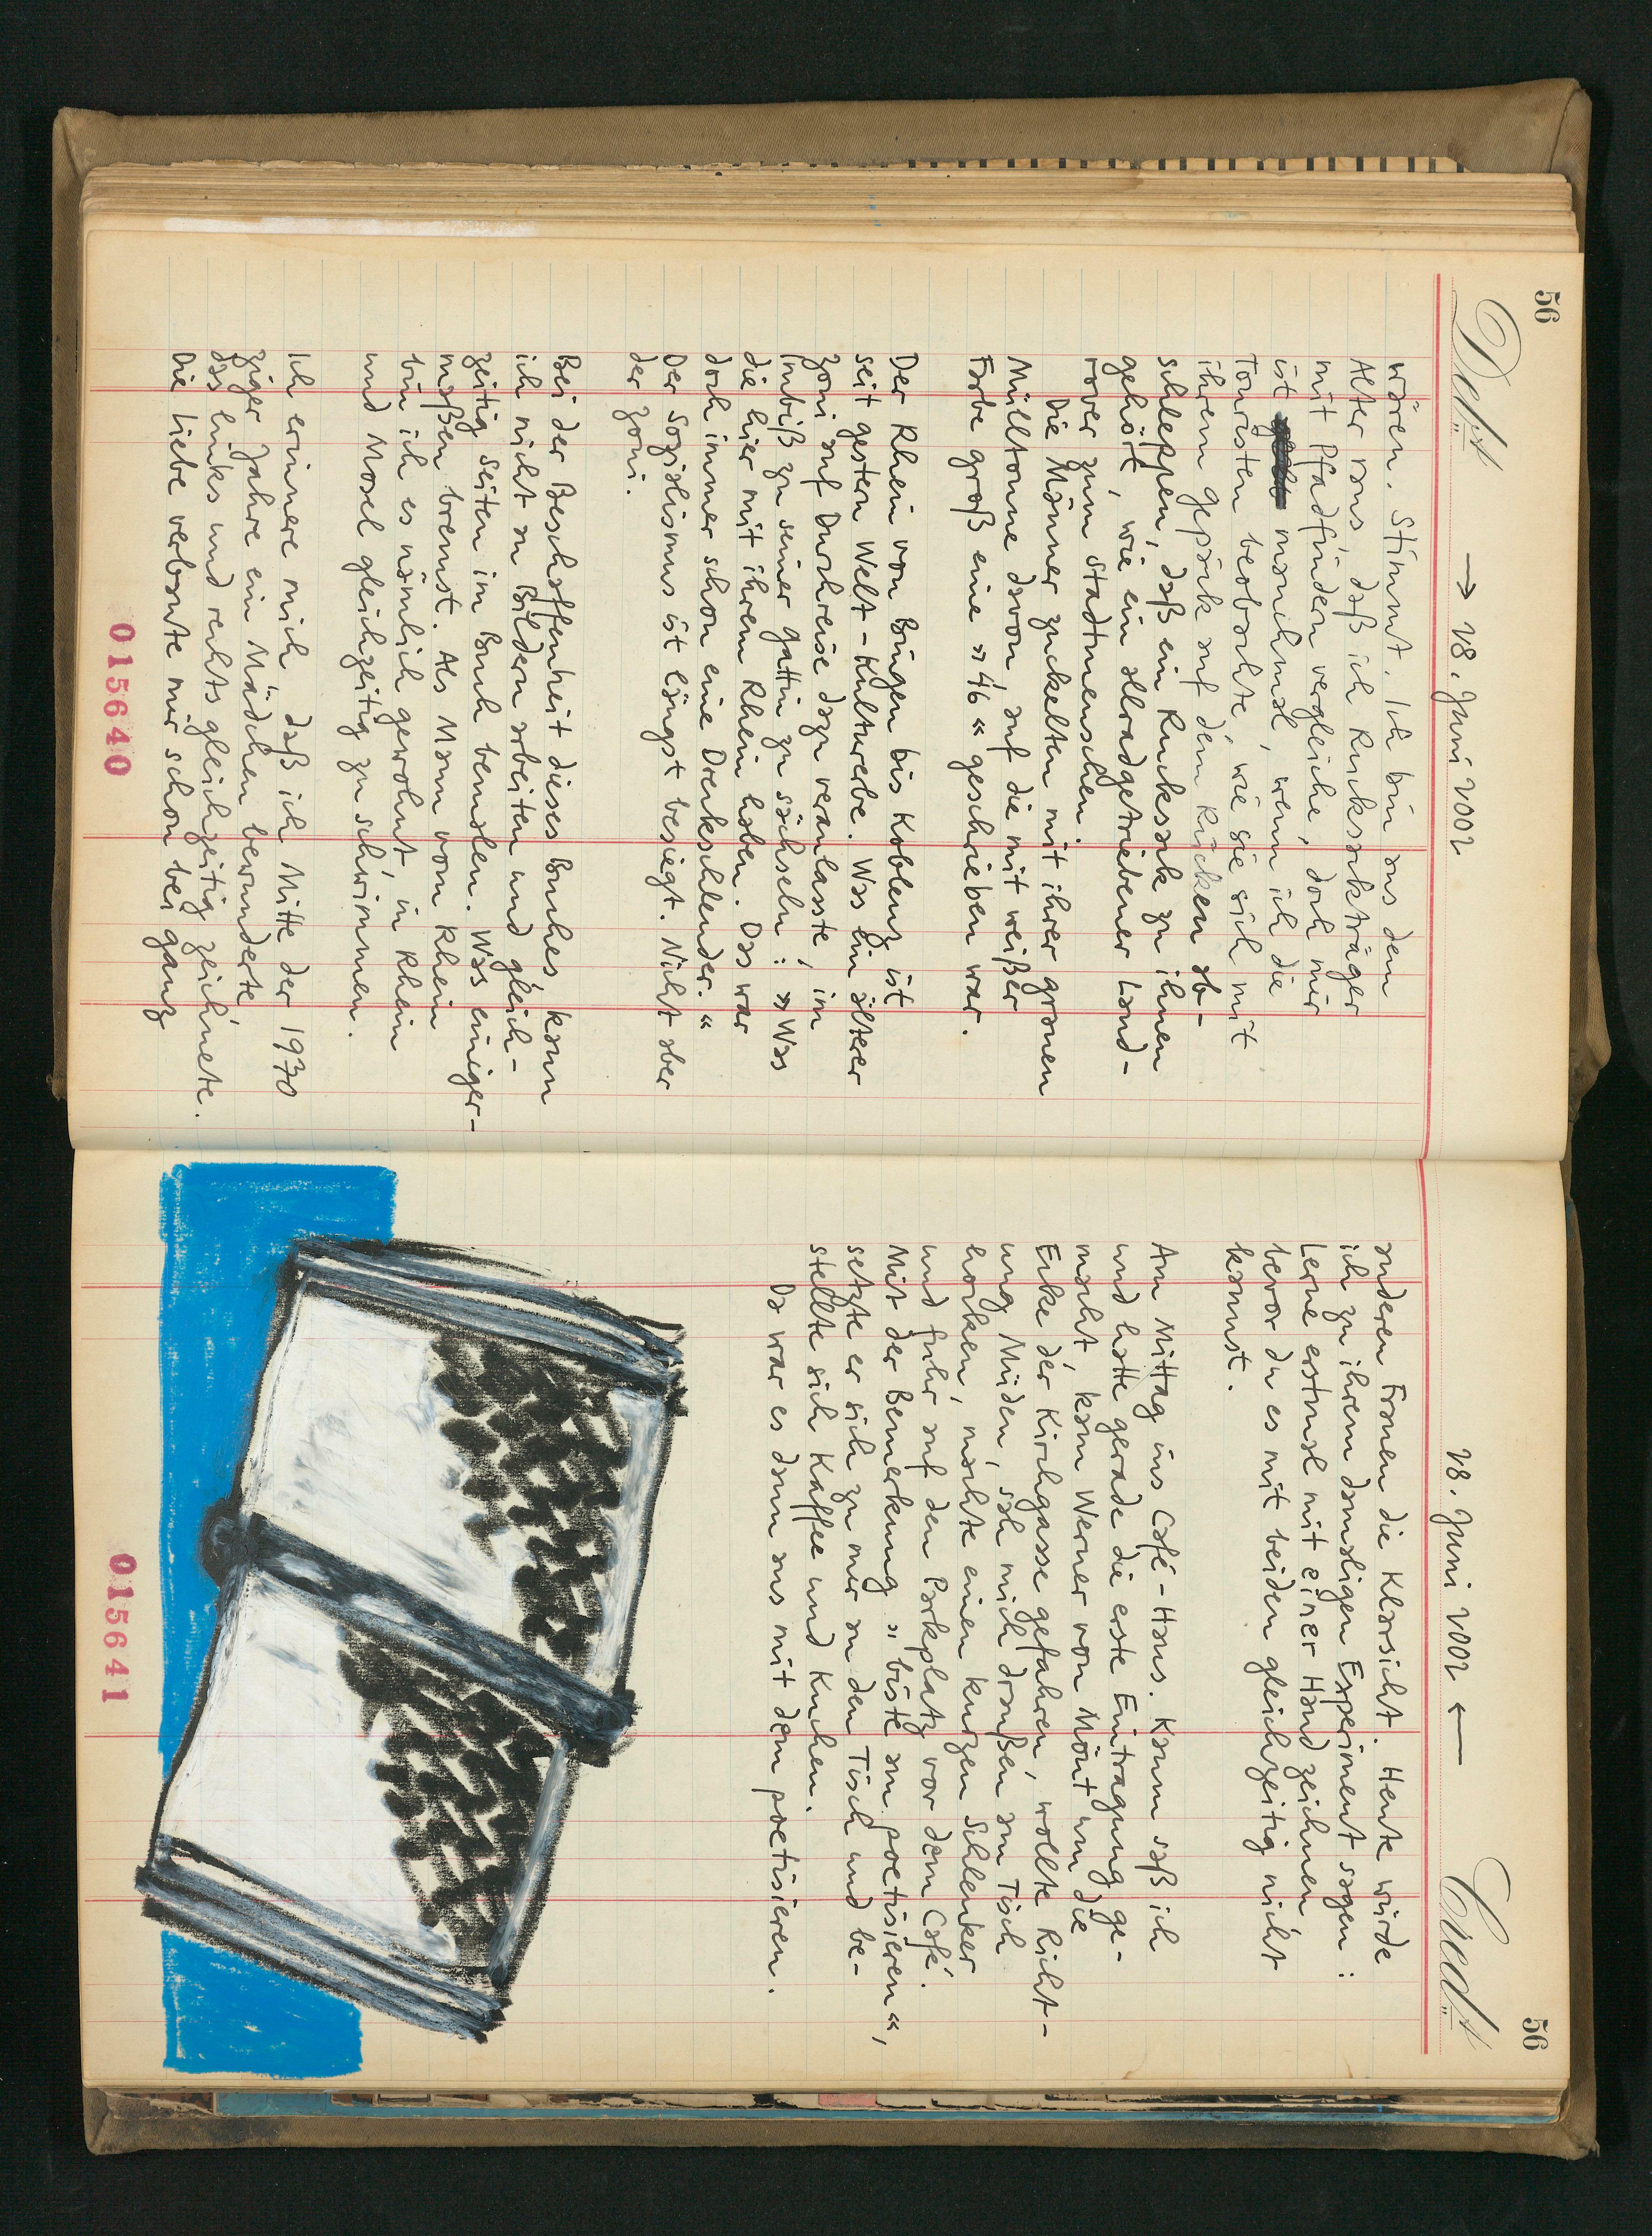 56
Debit
→ 28. Juni 2002
wären. Stimmt. Ich bin aus dem
Alter raus, daß ich Rucksackträger
mit Pfadfindern vergleiche, doch mir
ist manchmal, wenn ich die
Touristen beobachte, wie sie sich mit
ihrem Gepäck auf dem Rücken ab-
schleppen, daß ein Rucksack zu ihnen
gehört, wie ein allradgetriebener Land-
rover zum Stadtmenschen.
Die Männer zuckelten mit ihrer grauen
Mülltonne davon, auf die mit weißer
Farbe groß eine »46« geschrieben war.
Der Rhein von Bingen bis Koblenz ist
seit gestern Welt-Kulturerbe. Was ein älterer
Zoni auf Durchreise dazu veranlasste, im
Imbiß zu seiner Gattin zu sächseln: »Was
die hier mit ihrem Rhein haben. Das war
doch immer schon eine Dreckschleuder.«
Der Sozialismus ist längst besiegt. Nicht aber
der Zoni.
Bei der Beschaffenheit dieses Buches kann
ich nicht an Bildern arbeiten und gleich-
zeitig Seiten im Buch bemalen. Was einiger-
maßen bremst. Als Mann vom Rhein
bin ich es nämlich gewohnt, in Rhein
und Mosel gleichzeitig zu schwimmen.
Ich erinnere mich, daß ich Mitte der 1970
ziger Jahre ein Mädchen bewunderte,
das links und rechts gleichzeitig zeichnete.
Die Liebe verbaute mir schon bei ganz
015640
56
Credit
28. Juni 2002 ←
anderen Frauen die Klarsicht. Heute würde
ich zu ihrem damaligen Experiment sagen:
Lerne erstmal mit einer Hand zeichnen
bevor du es mit beiden gleichzeitig nicht
kannst.
Am Mittag ins Café-Haus. Kaum saß ich
und hatte gerade die erste Eintragung ge-
macht, kam Werner von Mönt um die
Ecke der Kirchgasse gefahren, wollte Richt-
ung Müden, sah mich draußen am Tisch
hocken, machte einen kurzen Schlenker
und fuhr auf den Parkplatz vor dem Café.
Mit der Bemerkung »biste am poetisieren«,
setzte er sich zu mir an den Tisch und be-
stellte sich Kaffee und Kuchen.
Da war es dann aus mit dem poetisieren.
015641